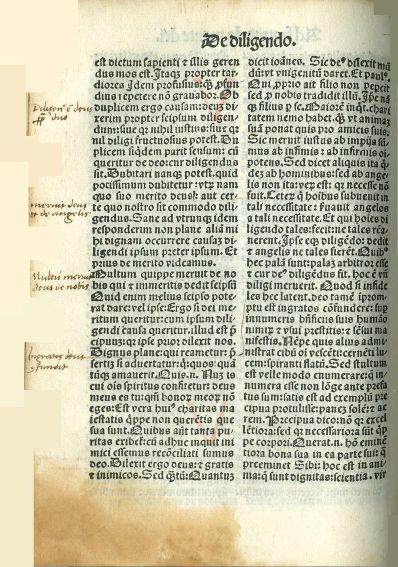 De diligendo.
est dictum sapienti ⁊ illis geren
dus mos est. Itaq̃ propter tar-
diores idem profusius q̃ꝫ ꝓfun
dius repetere nõ grauabor. Ob
duplicem ergo causam deuʒ di-
xerim propter seipsum diligen-
dum: siue qꝛ nihil iustius: siue qꝛ
nil diligi fructuosius potest. Du
plicem siq̃dem parit sensum: cũ
queritur de deo: cur diligendus
sit. Dubitari nanq̃ potest. quid
potissimum dubitetur: vtꝝ nam
quo suo merito deus: aut cer-
te quo nostro sit commodo dili-
gendus. Sane ad vtrunq̃ idem
responderim non plane aliã mi
hi dignam occurrere causaʒ di-
ligendi ipsum preter ipsum. Et
prius de merito videamus.
Multum quippe meruit de no
bis qui ⁊ immeritis dedit seipsũ
Quid enim melius seipso pote-
rat dare: vel ipse: Ergo si dei me-
ritum queritur: cum ipsum dili-
gendi causa queritur. illud est p̃
cipuuʒ: qꝛ ipse prior dilexit nos.
Dignus plane: qui reametur: p̃
sertiʒ si aduertatur: q̃s: quos: quã
tũq̃ʒ amauerit. Quis. n. Nuʒ is
cui oĩs spiritus confitetur: deus
meus es tu: qm̃ bonoꝝ meoꝝ nõ
eges: Est vera huiꝰ charitas ma
iestatis q̃ppe non querẽtis que
sua sunt. Quibus aũt tanta pu-
ritas exibet: cũ adhuc inqt̃ ini
mici essemus recõciliati sumus
deo. Dilexit ergo deus: ⁊ gratis
⁊ inimicos. Sed q̃tũ: Quantuʒ
dicit ioãnes. Sic deꝰ dilexit mũ
dũ: vt vnigenitũ daret. Et paulꝰ.
Qui ꝓprio ait filio non pepcit
sed ꝓ nobis tradidit illũ. Ipse nã
qʒ filius ꝑ se. Maiorẽ inqt̃ chari
tatem nemo habet. q̃ꝫ vt animaʒ
suam ponat quis pro amicis suis:
Sic meruit iustus ab impiis sũ-
mus ab infimis: ab infirmis oĩ-
potens. Sed dicet aliquis ita q̃-
deʒ ab hominibus: sed ab ange-
lis non ita: veꝝ est: qꝛ necesse nõ
fuit. Ceteꝝ q̃ hoĩbus subuenit in
tali necessitate: seruauit angelos
a tali necessitate. Et qui hoĩes di
ligendo tales: fecit ne tales rẽa-
nerent. Ipse eq̃ diligẽdo: dedit
⁊ angelis ne tales fierẽt. Quibꝰ
hec palã sunt: palaʒ arbitror esse
⁊ cur deꝰ diligẽdus sit. hoc ẽ vñ
diligi meruerit. Quod si infide
les hec latent. deo tamẽ ĩprom-
ptu est ingratos cõfundere: suꝑ
innumeris bñficiis suis humão
nimirꝝ ⁊ vsui prestitis: ⁊ sẽsui ma
nifestis. Nẽpe quis alius admi-
strat cibũ oĩ vescẽti: cernẽti lu-
cem: spiranti flatũ. Sed stultum
est velle modo enumerare: q̃ in
numera esse non lõge ante prefa
tus sum: satis est ad exemplũ pre
cipua protulisse: paneʒ: solẽ: ⁊ ae
rem. Precipua dico: nõ qꝛ excel
lẽtiora: sed qꝛ necessariora: sũt q̃p
pe corpori. Querat. n. hõ eminẽ
tiora bona sua in ea parte sui: q̃
preeminet Sibi: hoc est in ani-
ma: q̃ sunt dignitas: scientia. vir